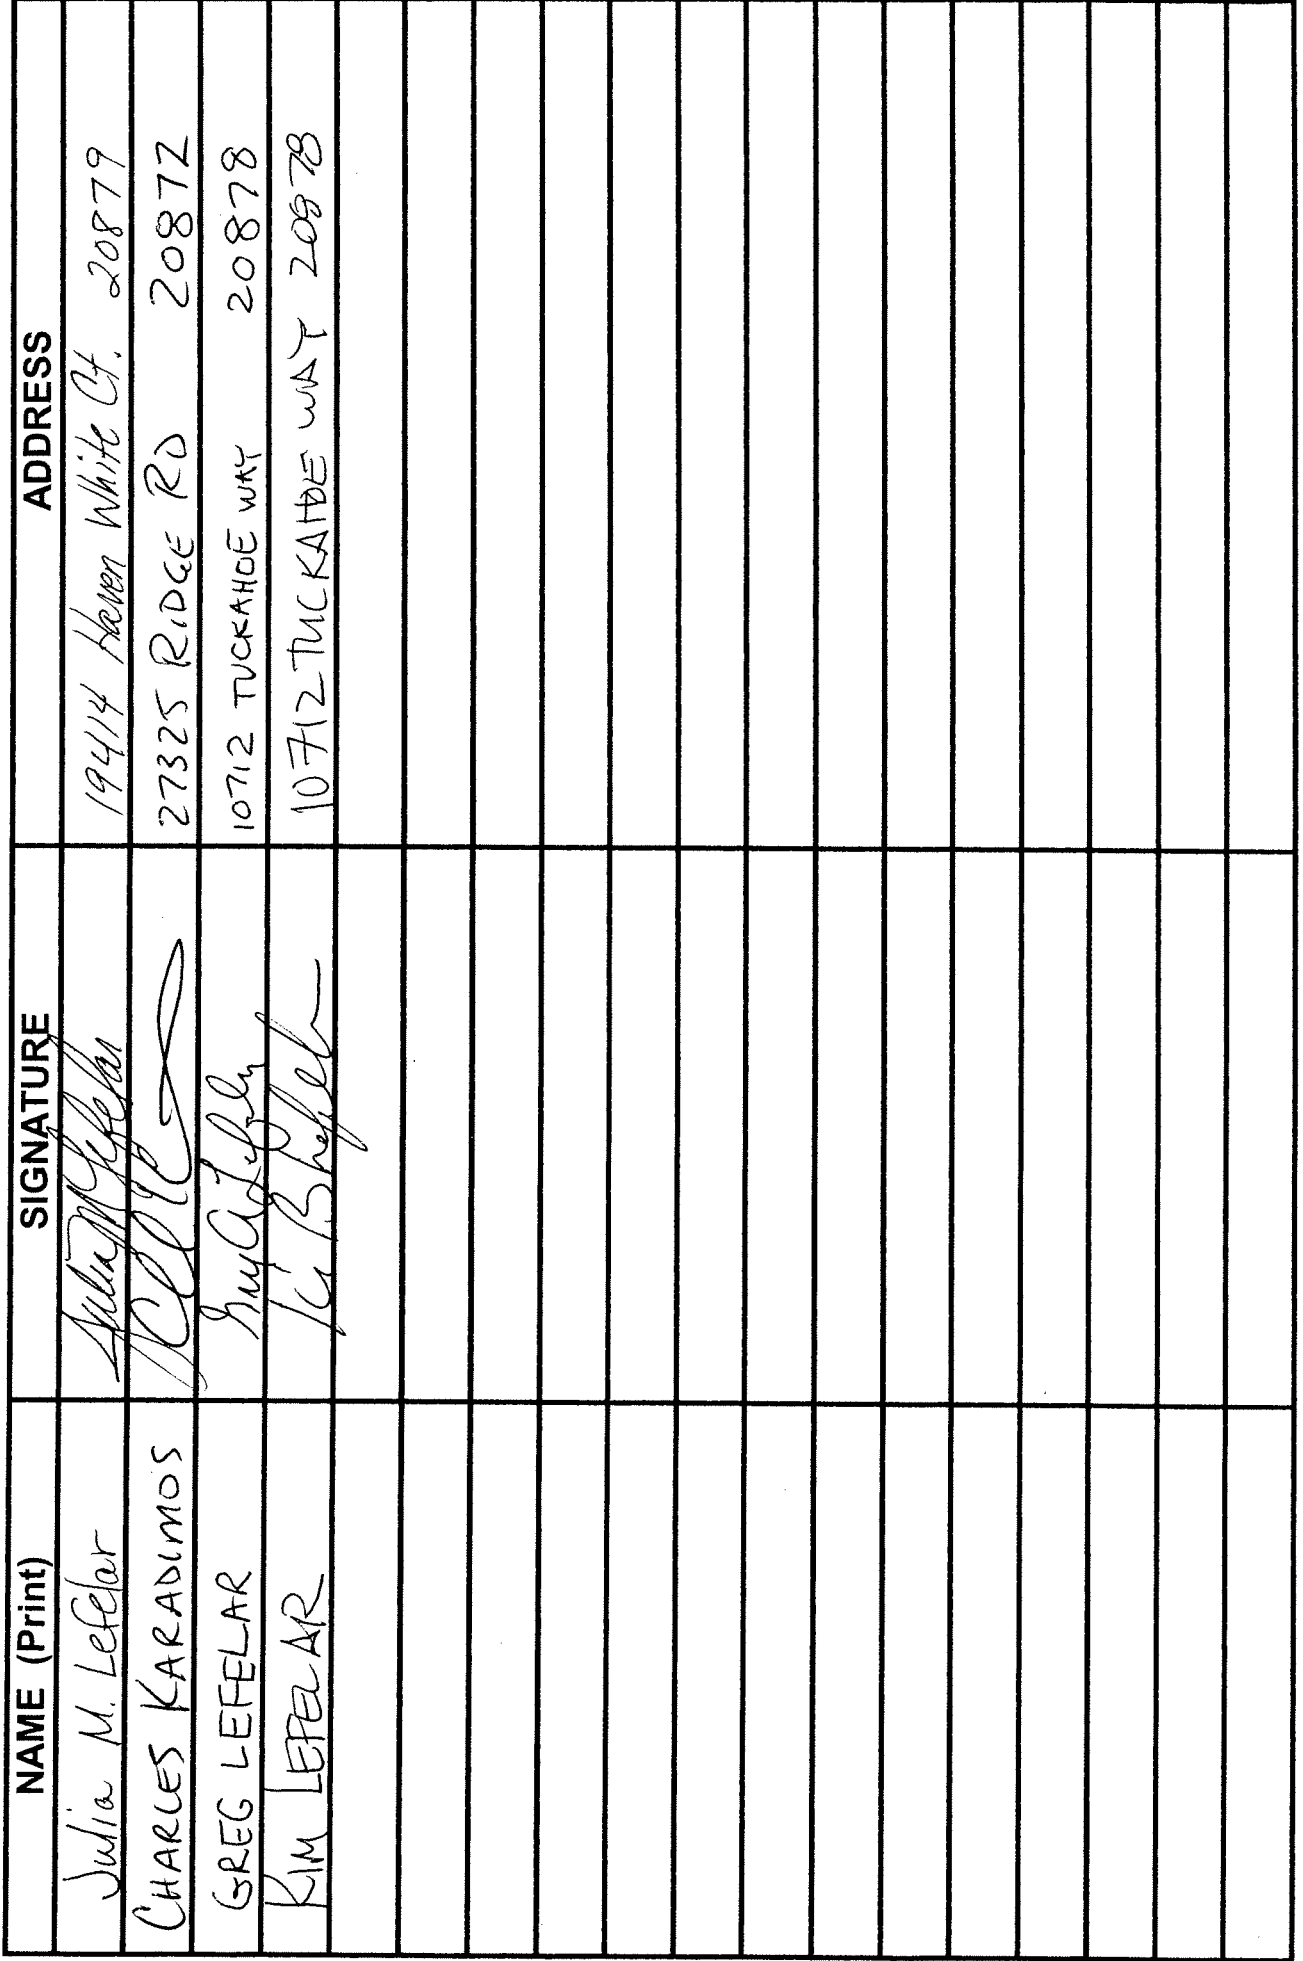 NAME (Print) SIGNATURE ADDRESS
Julia M. Lefelar Julia M Lefelar 19414 Haven White Ct. 20879
CHARLES KARADIMOS 27325 RIDGE RD 20872
GREG LEFELAR 10712 TUCKAHOE WAY 20878
KIM LEFELAR 10712 TUCKAHOE WAY 20878